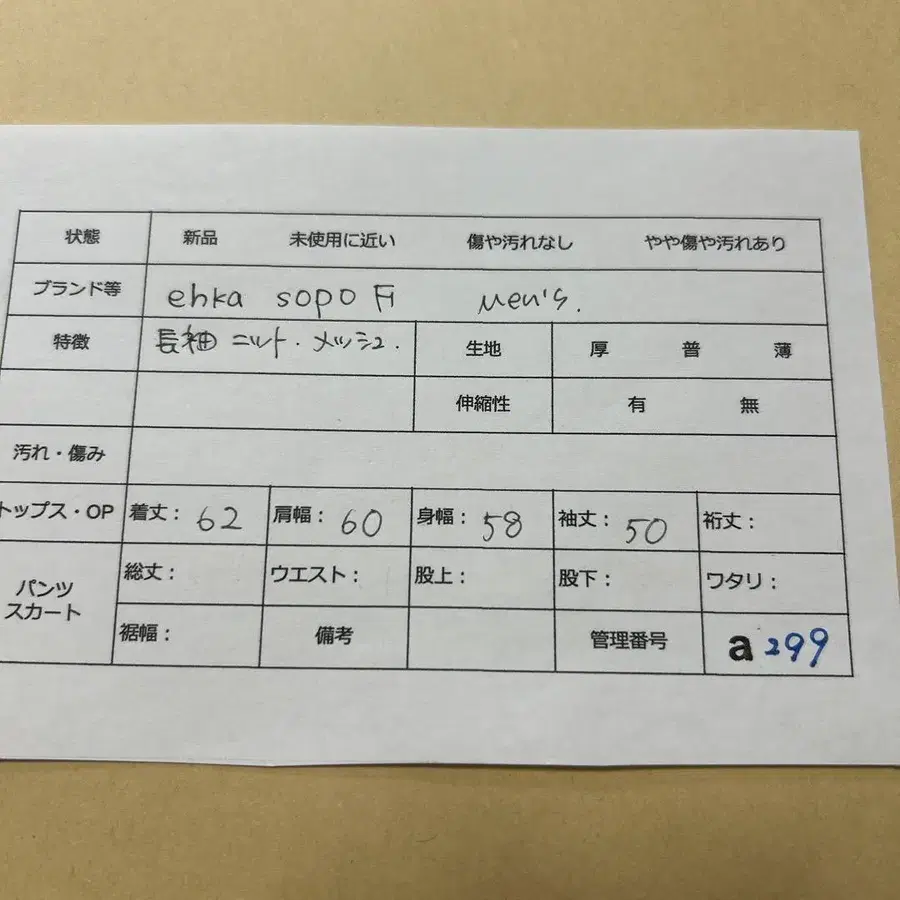 状態 新品 未使用に近い 傷や汚れなし やや傷や汚れあり
ブランド等 ehka sopo F Men's.
特徴 長袖 ニット・メッシュ. 生地 厚 普 薄
伸縮性 有 無
汚れ・傷み
トップス・OP 着丈: 62 肩幅: 60 身幅: 58 袖丈: 50 裄丈:
パンツ 総丈: ウエスト: 股上: 股下: ワタリ:
スカート 裾幅: 備考 管理番号 a299